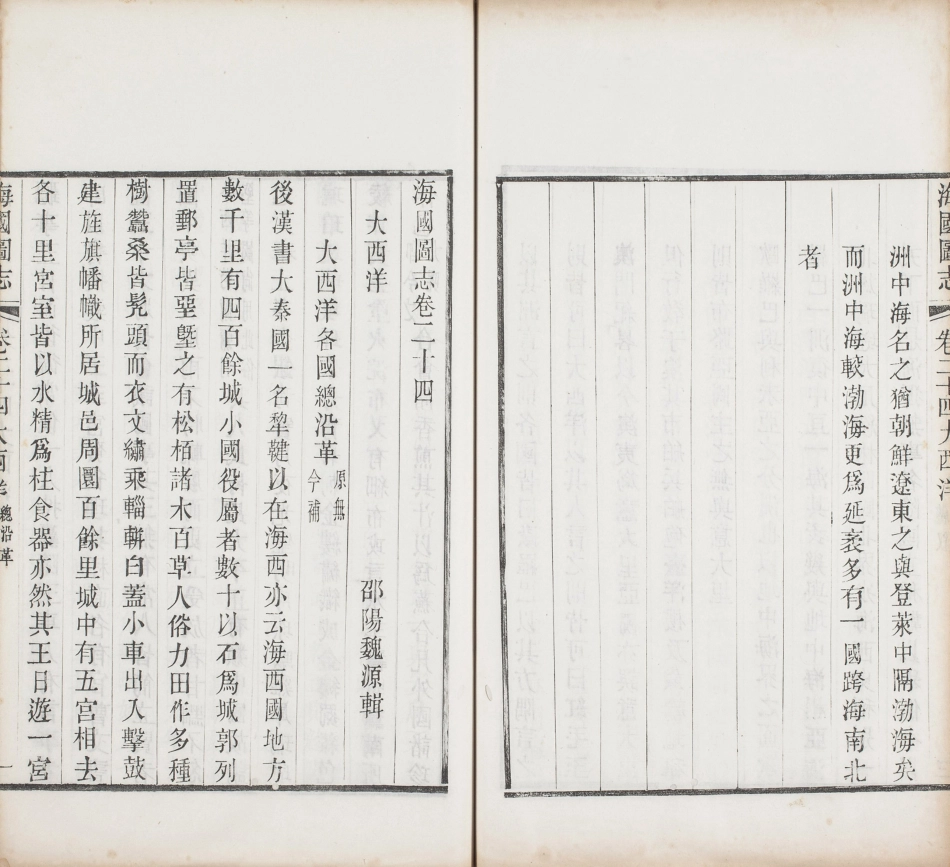 海國圖志 卷二十四大西洋
洲中海名之猶朝鮮遼東之與登萊中隔渤海矣
而洲中海較渤海更爲延袤多有一國跨海南北
者
海國圖志卷二十四
大西洋
邵陽魏源輯
大西洋各國總沿革 原無今補
後漢書大秦國一名犂鞬以在海西亦云海西國地方
數千里有四百餘城小國役屬者數十以石爲城郭列
置郵亭皆堊塈之有松栢諸木百草人俗力田作多種
樹蠶桑皆髡頭而衣文繡乘輜軿白蓋小車出入擊鼓
建旌旗幡幟所居城邑周圜百餘里城中有五宮相去
各十里宮室皆以水精爲柱食器亦然其王日遊一宮
海國圖志 卷二十四大西洋 總沿革 一